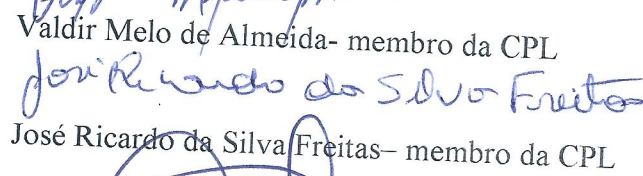 Valdir Melo de Almeida- membro da CPL
José Ricardo da Silva Freitas
José Ricardo da Silva Freitas– membro da CPL